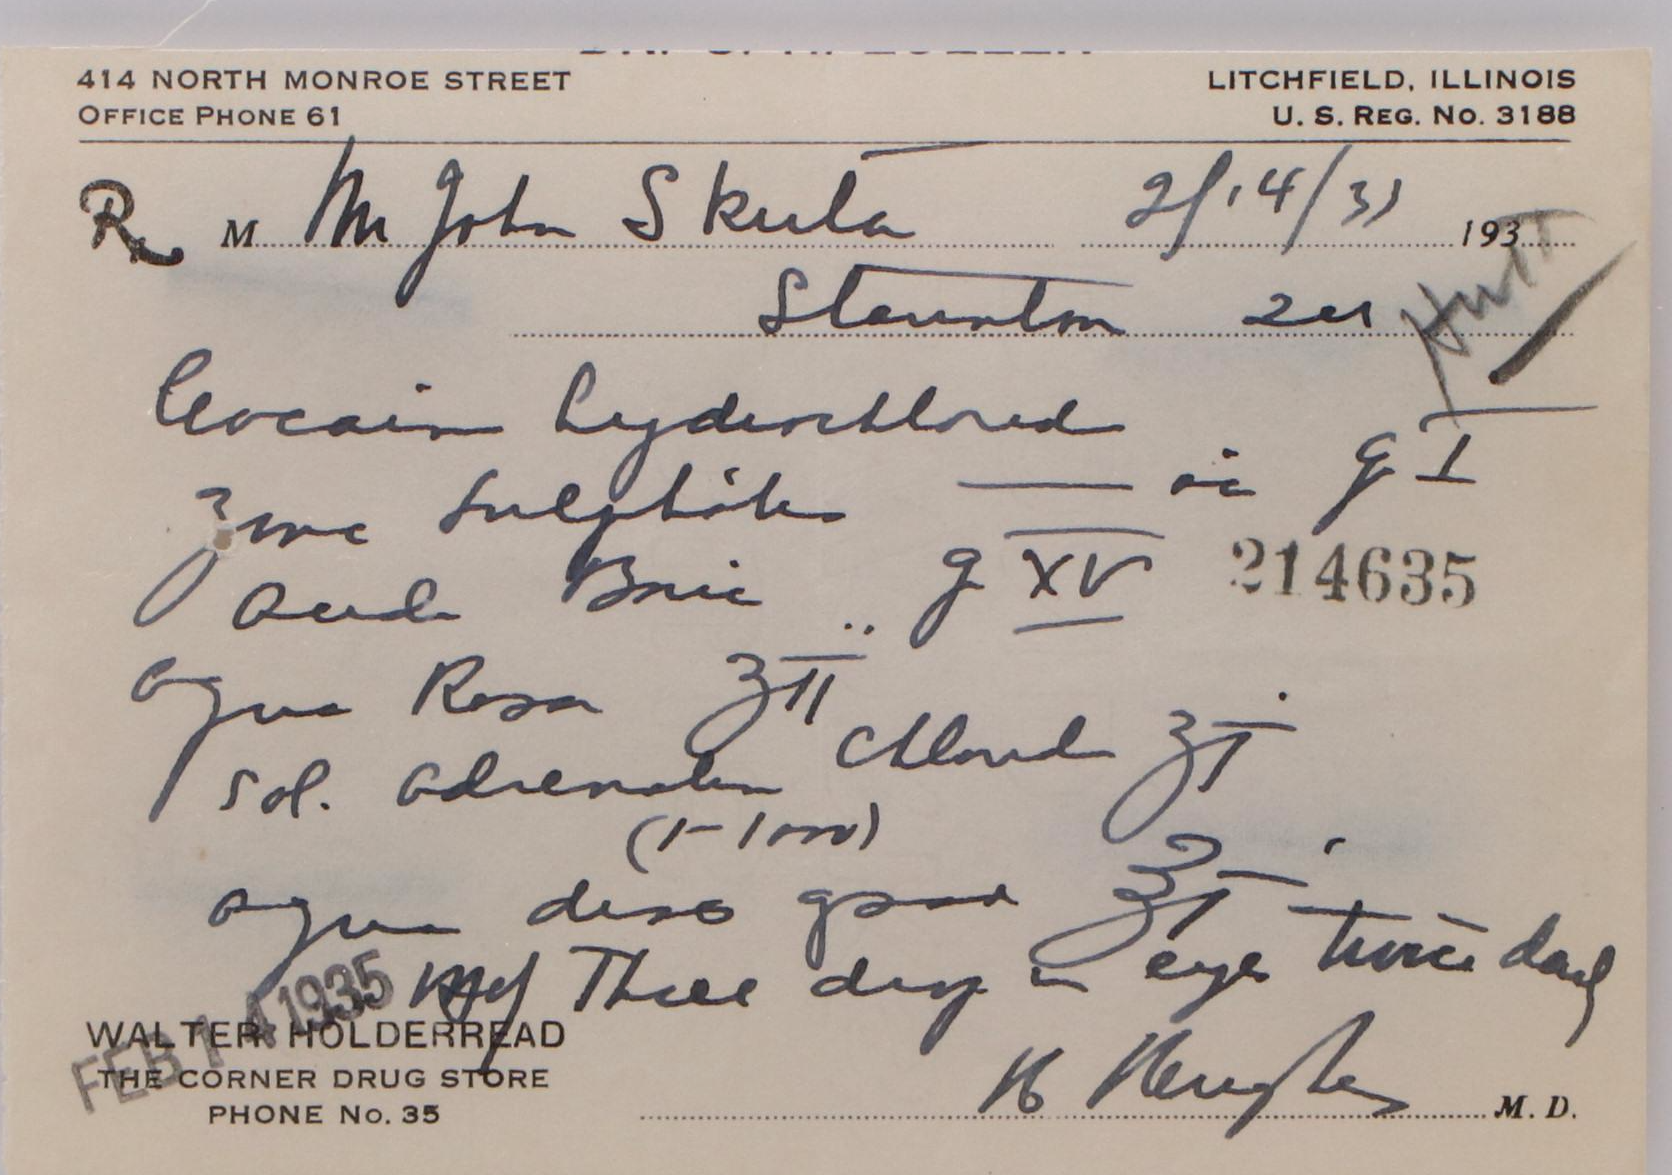 414 NORTH MONROE STREET LITCHFIELD, ILLINOIS
OFFICE PHONE 61 U. S. REG. No. 3188
Rx M Mr John Skuta 2/14/35 193
Staunton Ill
Cocain hydrochlorid
Zinc Sulphate —— aa g I
Acid Boric g XV 214635
aqua Rosa ʒ II
Sol. adrenalin Chlorid ʒ I
(1-1000)
aqua dest ʒ I
Three drops in eyes twice daily
FEB 14 1935
WALTER HOLDERREAD
THE CORNER DRUG STORE
PHONE No. 35
M. D.